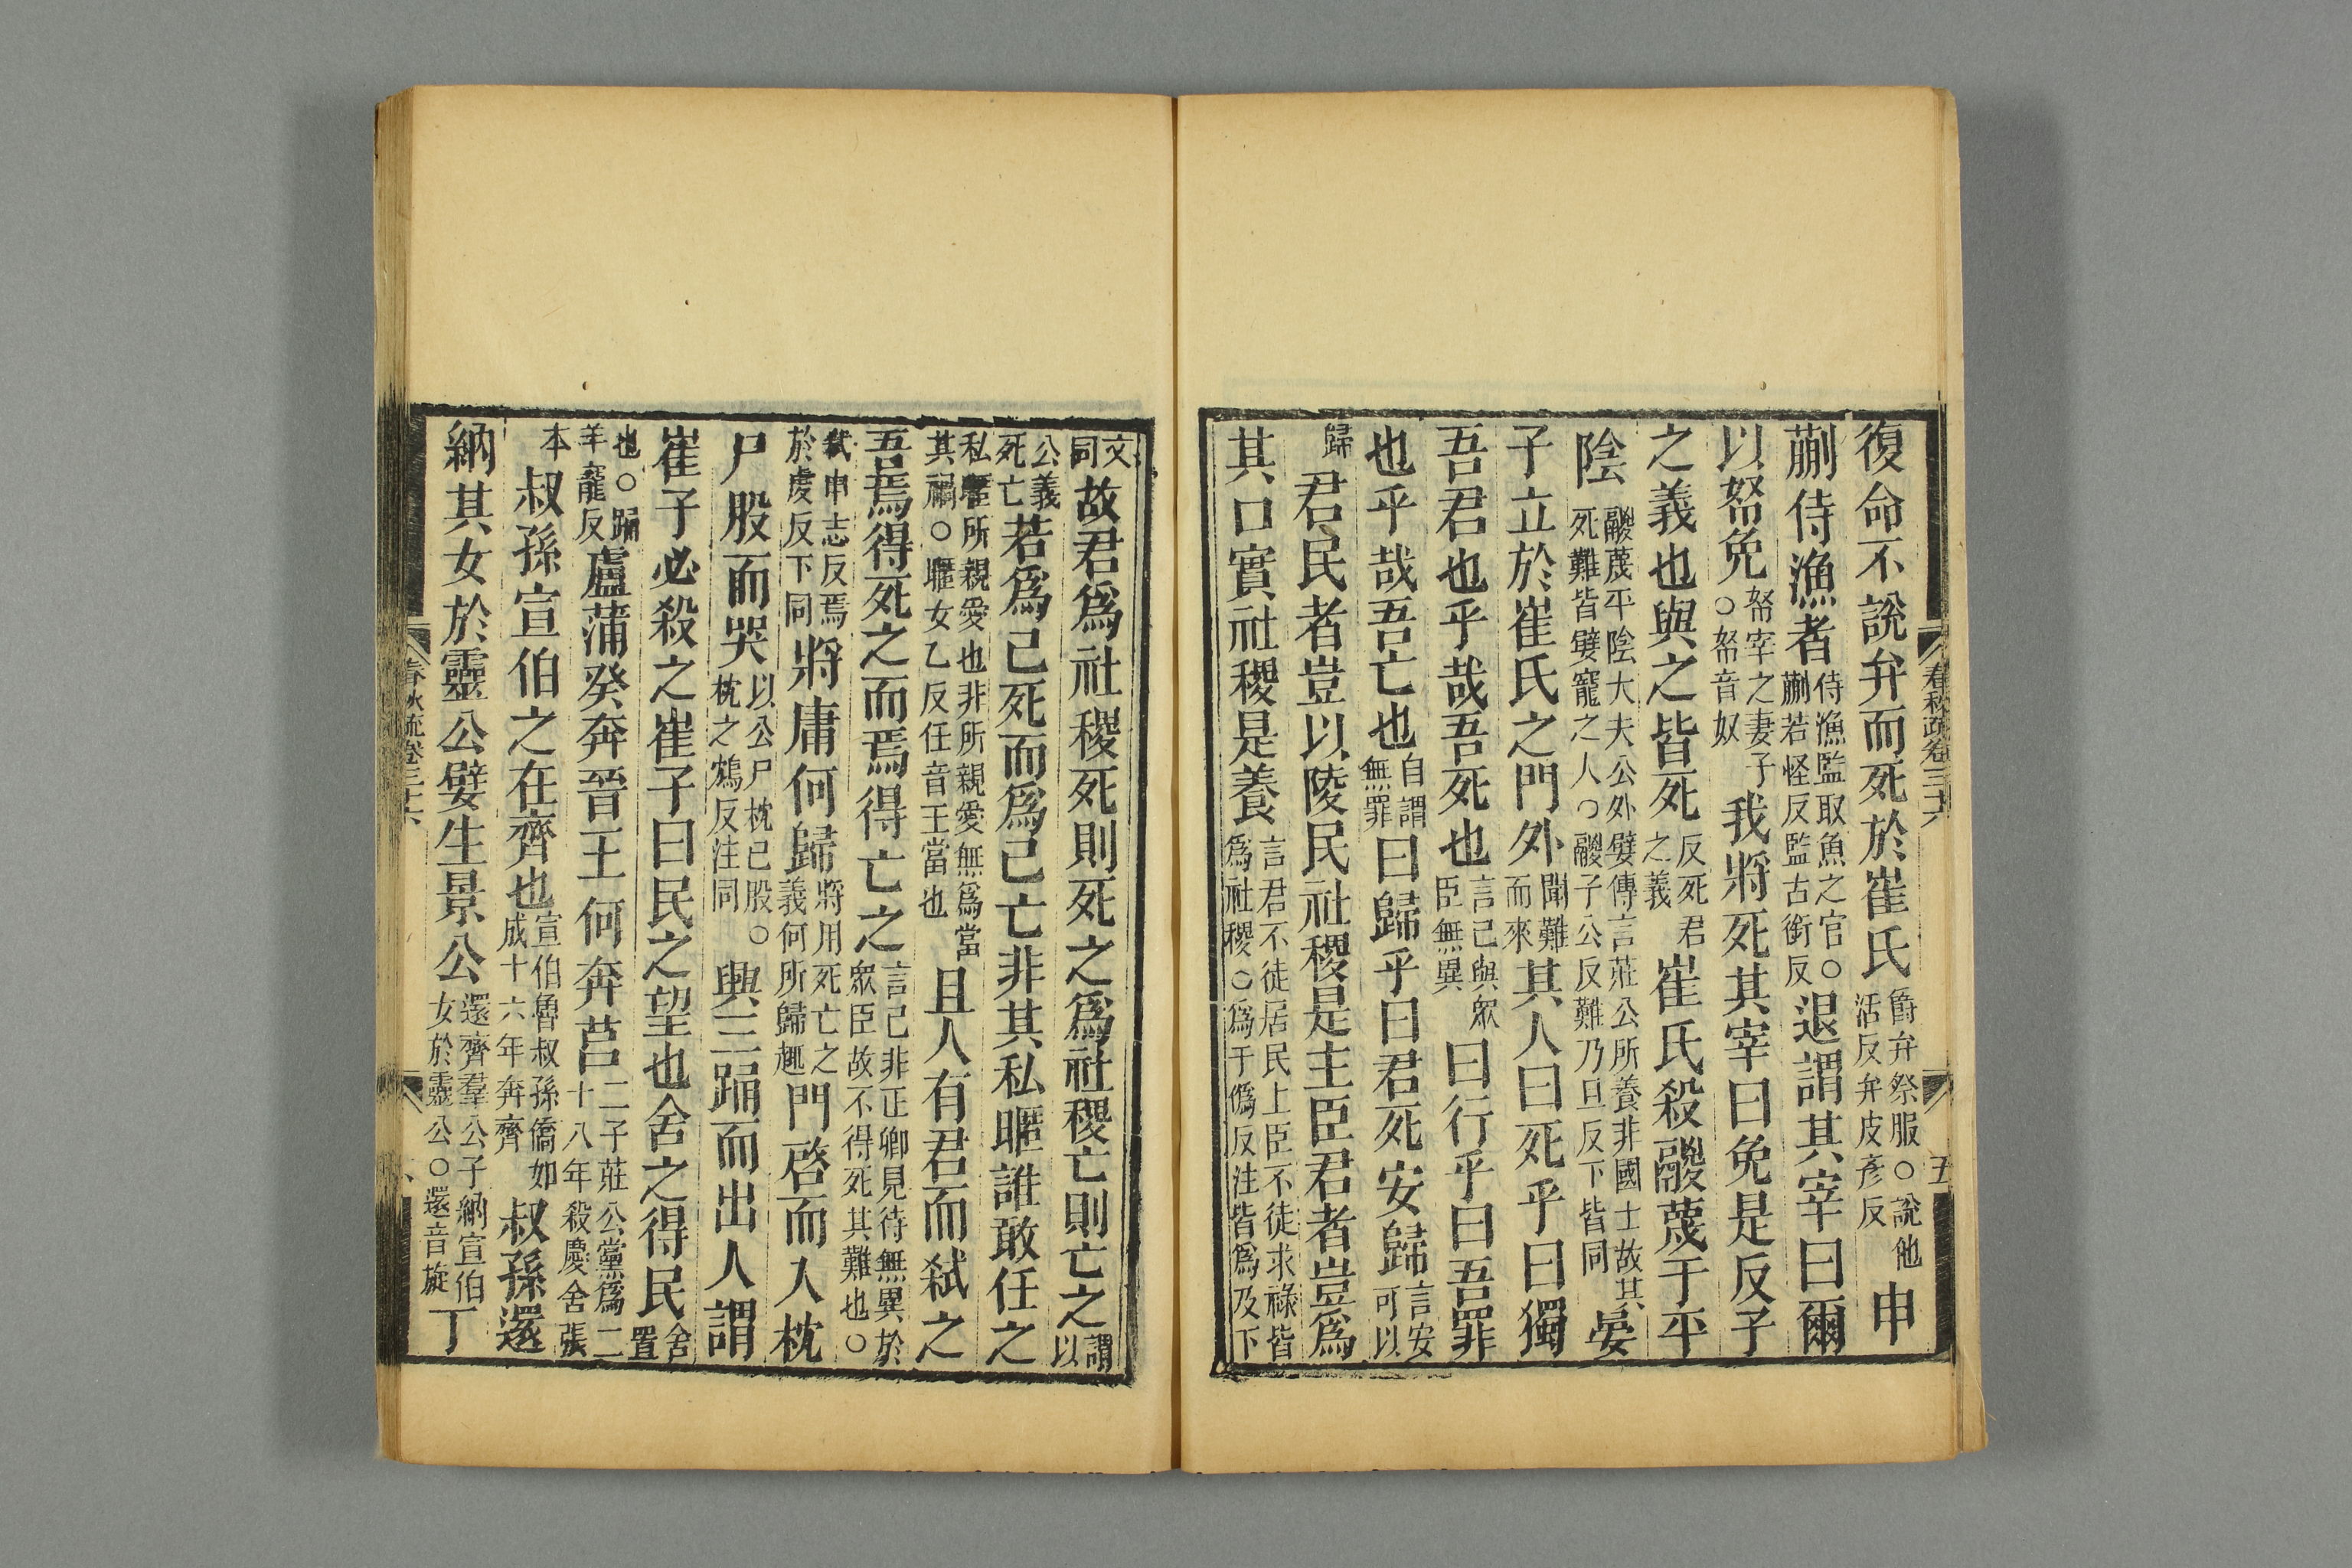 復命不說弁而死於崔氏爵弁祭服○說他活反弁皮彥反申
蒯侍漁者侍漁監取魚之官○蒯若怪反監古銜反退謂其宰曰爾
以帑免帑宰之妻子○帑音奴我將死其宰曰免是反子
之義也與之皆死反死君之義崔氏殺鬷蔑于平
陰鬷蔑平陰大夫公外嬖傳言莊公所養非國士故其死難皆嬖寵之人○鬷子公反難乃旦反下皆同晏
子立於崔氏之門外聞難而來其人曰死乎曰獨
吾君也乎哉吾死也言己與眾臣無異曰行乎曰吾罪
也乎哉吾亡也自謂無罪曰歸乎曰君死安歸言安可以
歸君民者豈以陵民社稷是主臣君者豈爲
其口實社稷是養言君不徒居民上臣不徒求祿皆爲社稷○爲于僞反注皆爲及下
文同故君爲社稷死則死之爲社稷亡則亡之謂以
公義死亡若爲己死而爲己亡非其私暱誰敢任之
私暱所親愛也非所親愛無爲當其禍○暱女乙反任音壬當也且人有君而弑之
吾焉得死之而焉得亡之言己非正卿見待無異於眾臣故不得死其難也○
弑申志反焉於虔反下同將庸何歸將用死亡之義何所歸趣門啓而入枕
尸股而哭以公尸枕己股○枕之鴆反注同興三踊而出人謂
崔子必殺之崔子曰民之望也舍之得民舍置
也○踊羊寵反盧蒲癸奔晉王何奔莒二子莊公黨爲二十八年殺慶舍張
本叔孫宣伯之在齊也宣伯魯叔孫僑如成十六年奔齊叔孫還
納其女於靈公嬖生景公還齊羣公子納宣伯女於靈公○還音旋丁
春秋疏卷三十六
五
春秋疏卷三十六